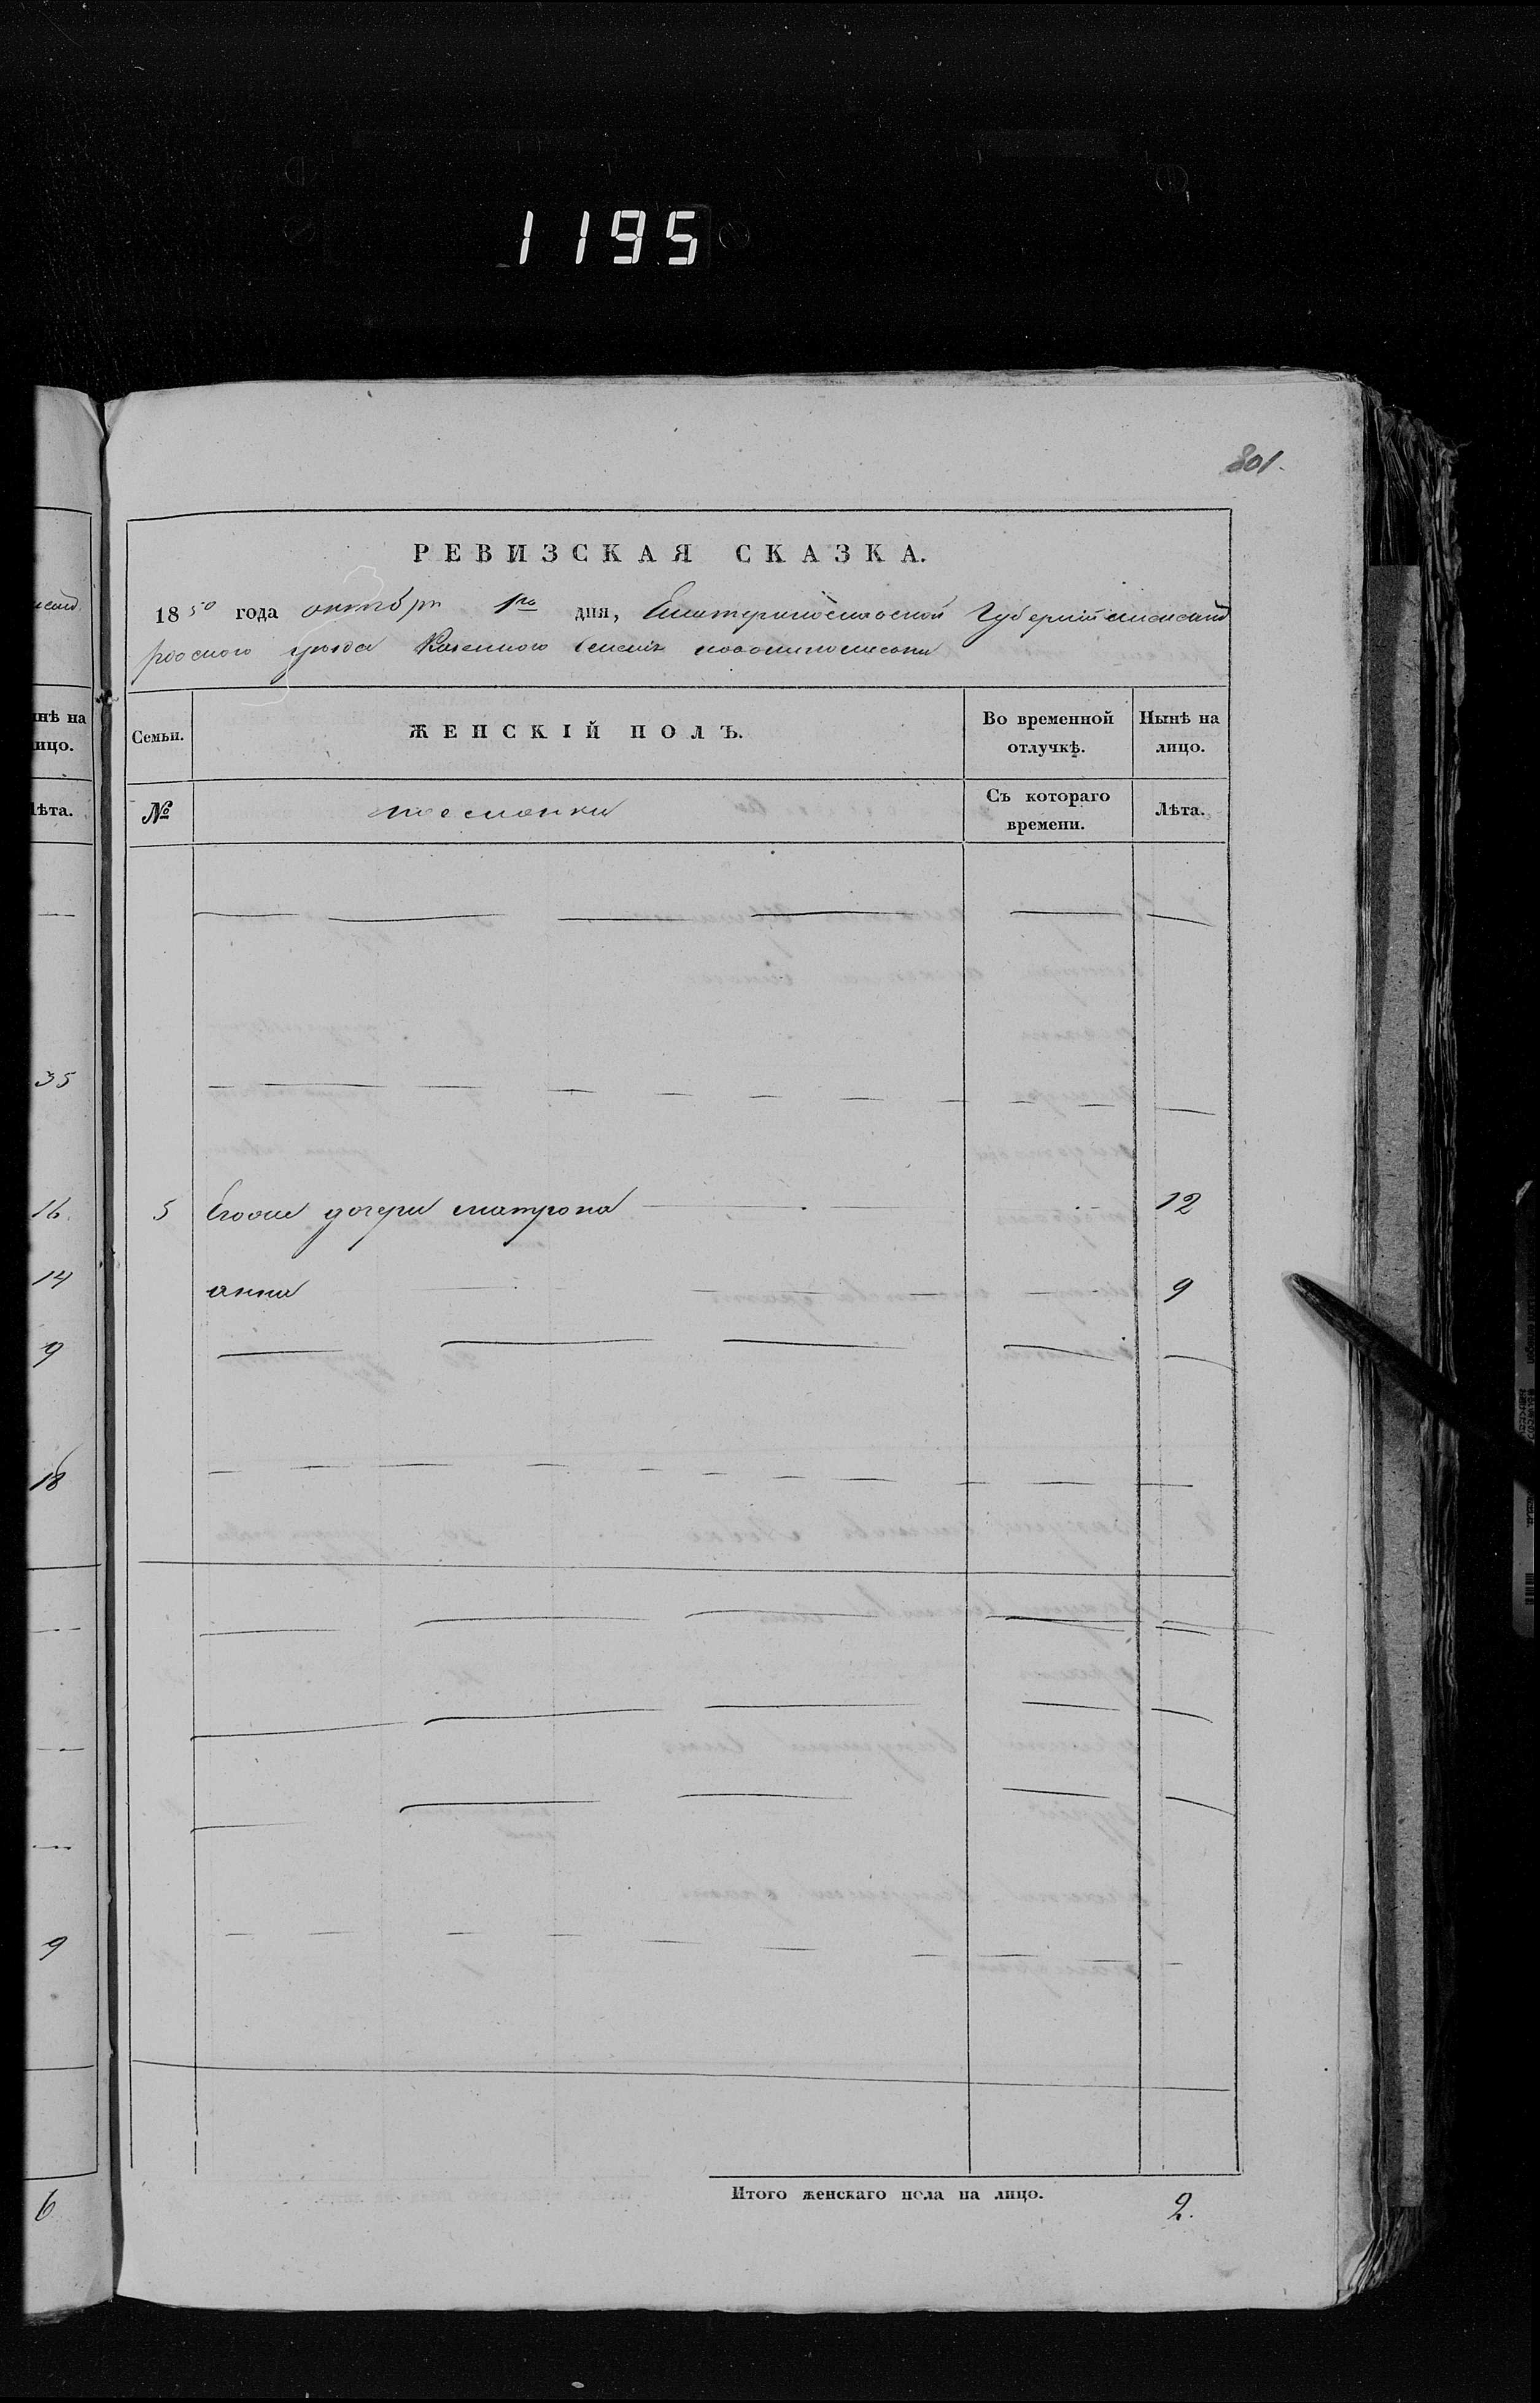 1195
801.
РЕВИЗСКАЯ СКАЗКА.
1850 года октября 1го дня, Екатеринославской Губерніи александ
ровского уезда Казенного селения
инѣ на
ицо.
Семьи.
ЖЕНСКІЙ ПОЛЪ.
Во временной
отлучкѣ.
Нынѣ на
лицо.
лѣта.
№
Съ котораго
времени.
Лѣта.
35
16
5 Егоои дочери матрона 12
14
анна 9
9
18
9
Итого женскаго пола на лицо. 2.
6